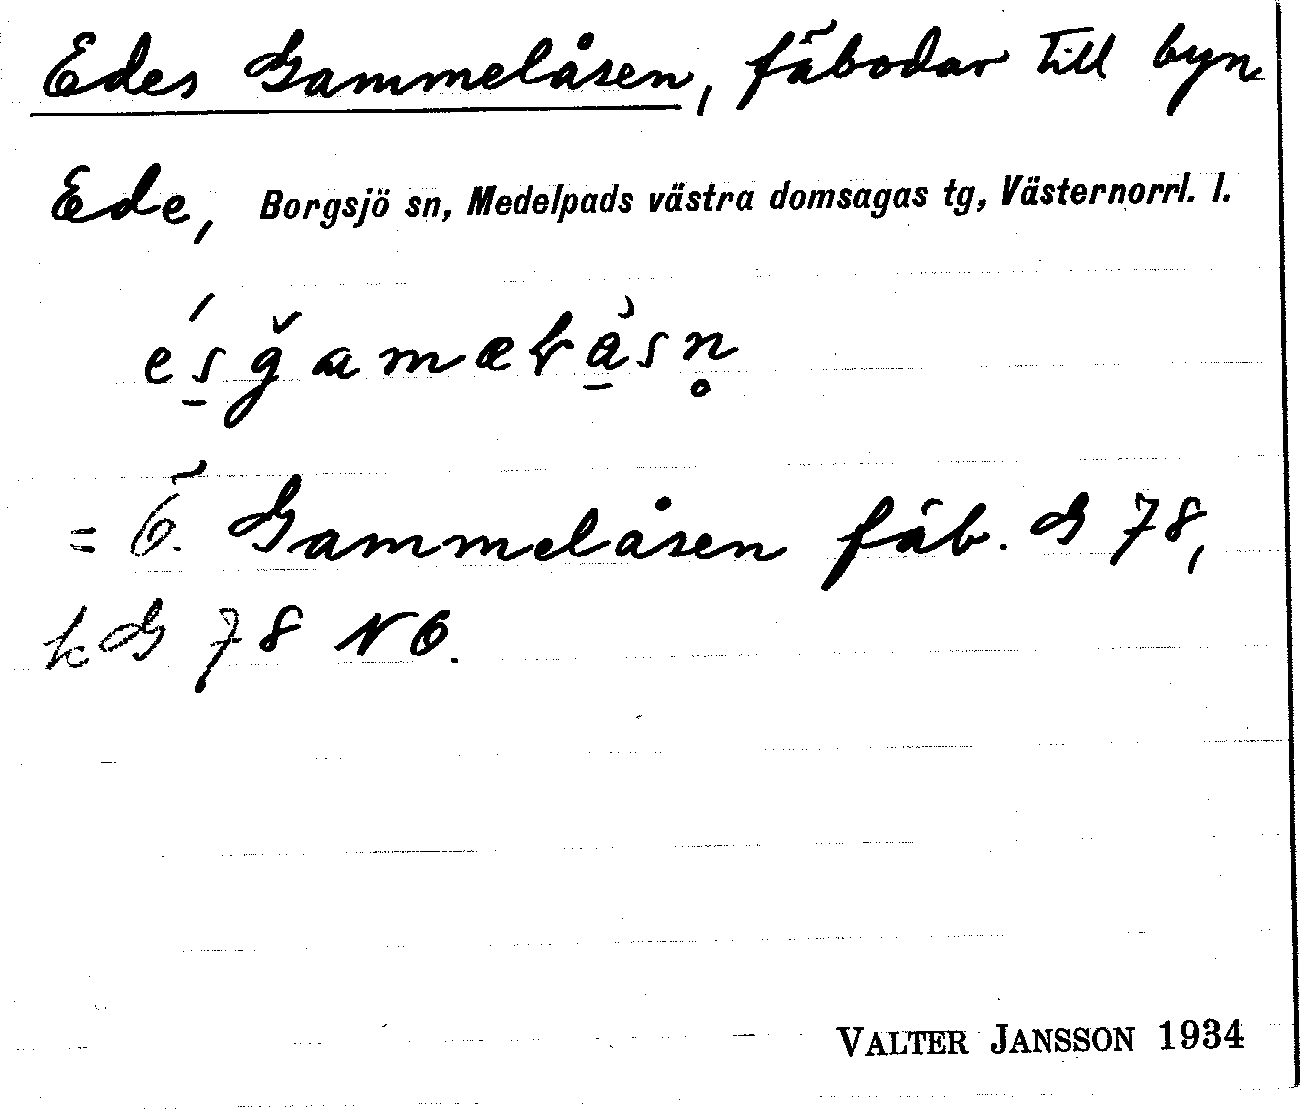 Edes Gammelåsen, fäbodar till byn
Ede, Borgsjö sn, Medelpads västra domsagas tg, Västernorrl. l.
= Ö. Gammelåsen fäb. G 78,
k G 78 NO.
VALTER JANSSON 1934